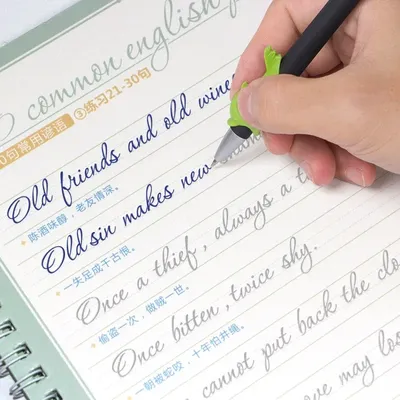 common english
0句常用谚语 ③练习21-30句
Old friends and old wines
陈酒味醇，老友情深。
Old sin makes new
一失足成千古恨。
Once a thief, always a
偷盗一次，做贼一世。
Once bitten, twice shy.
一朝被蛇咬，十年怕井绳。
cannot put back the clo
may los